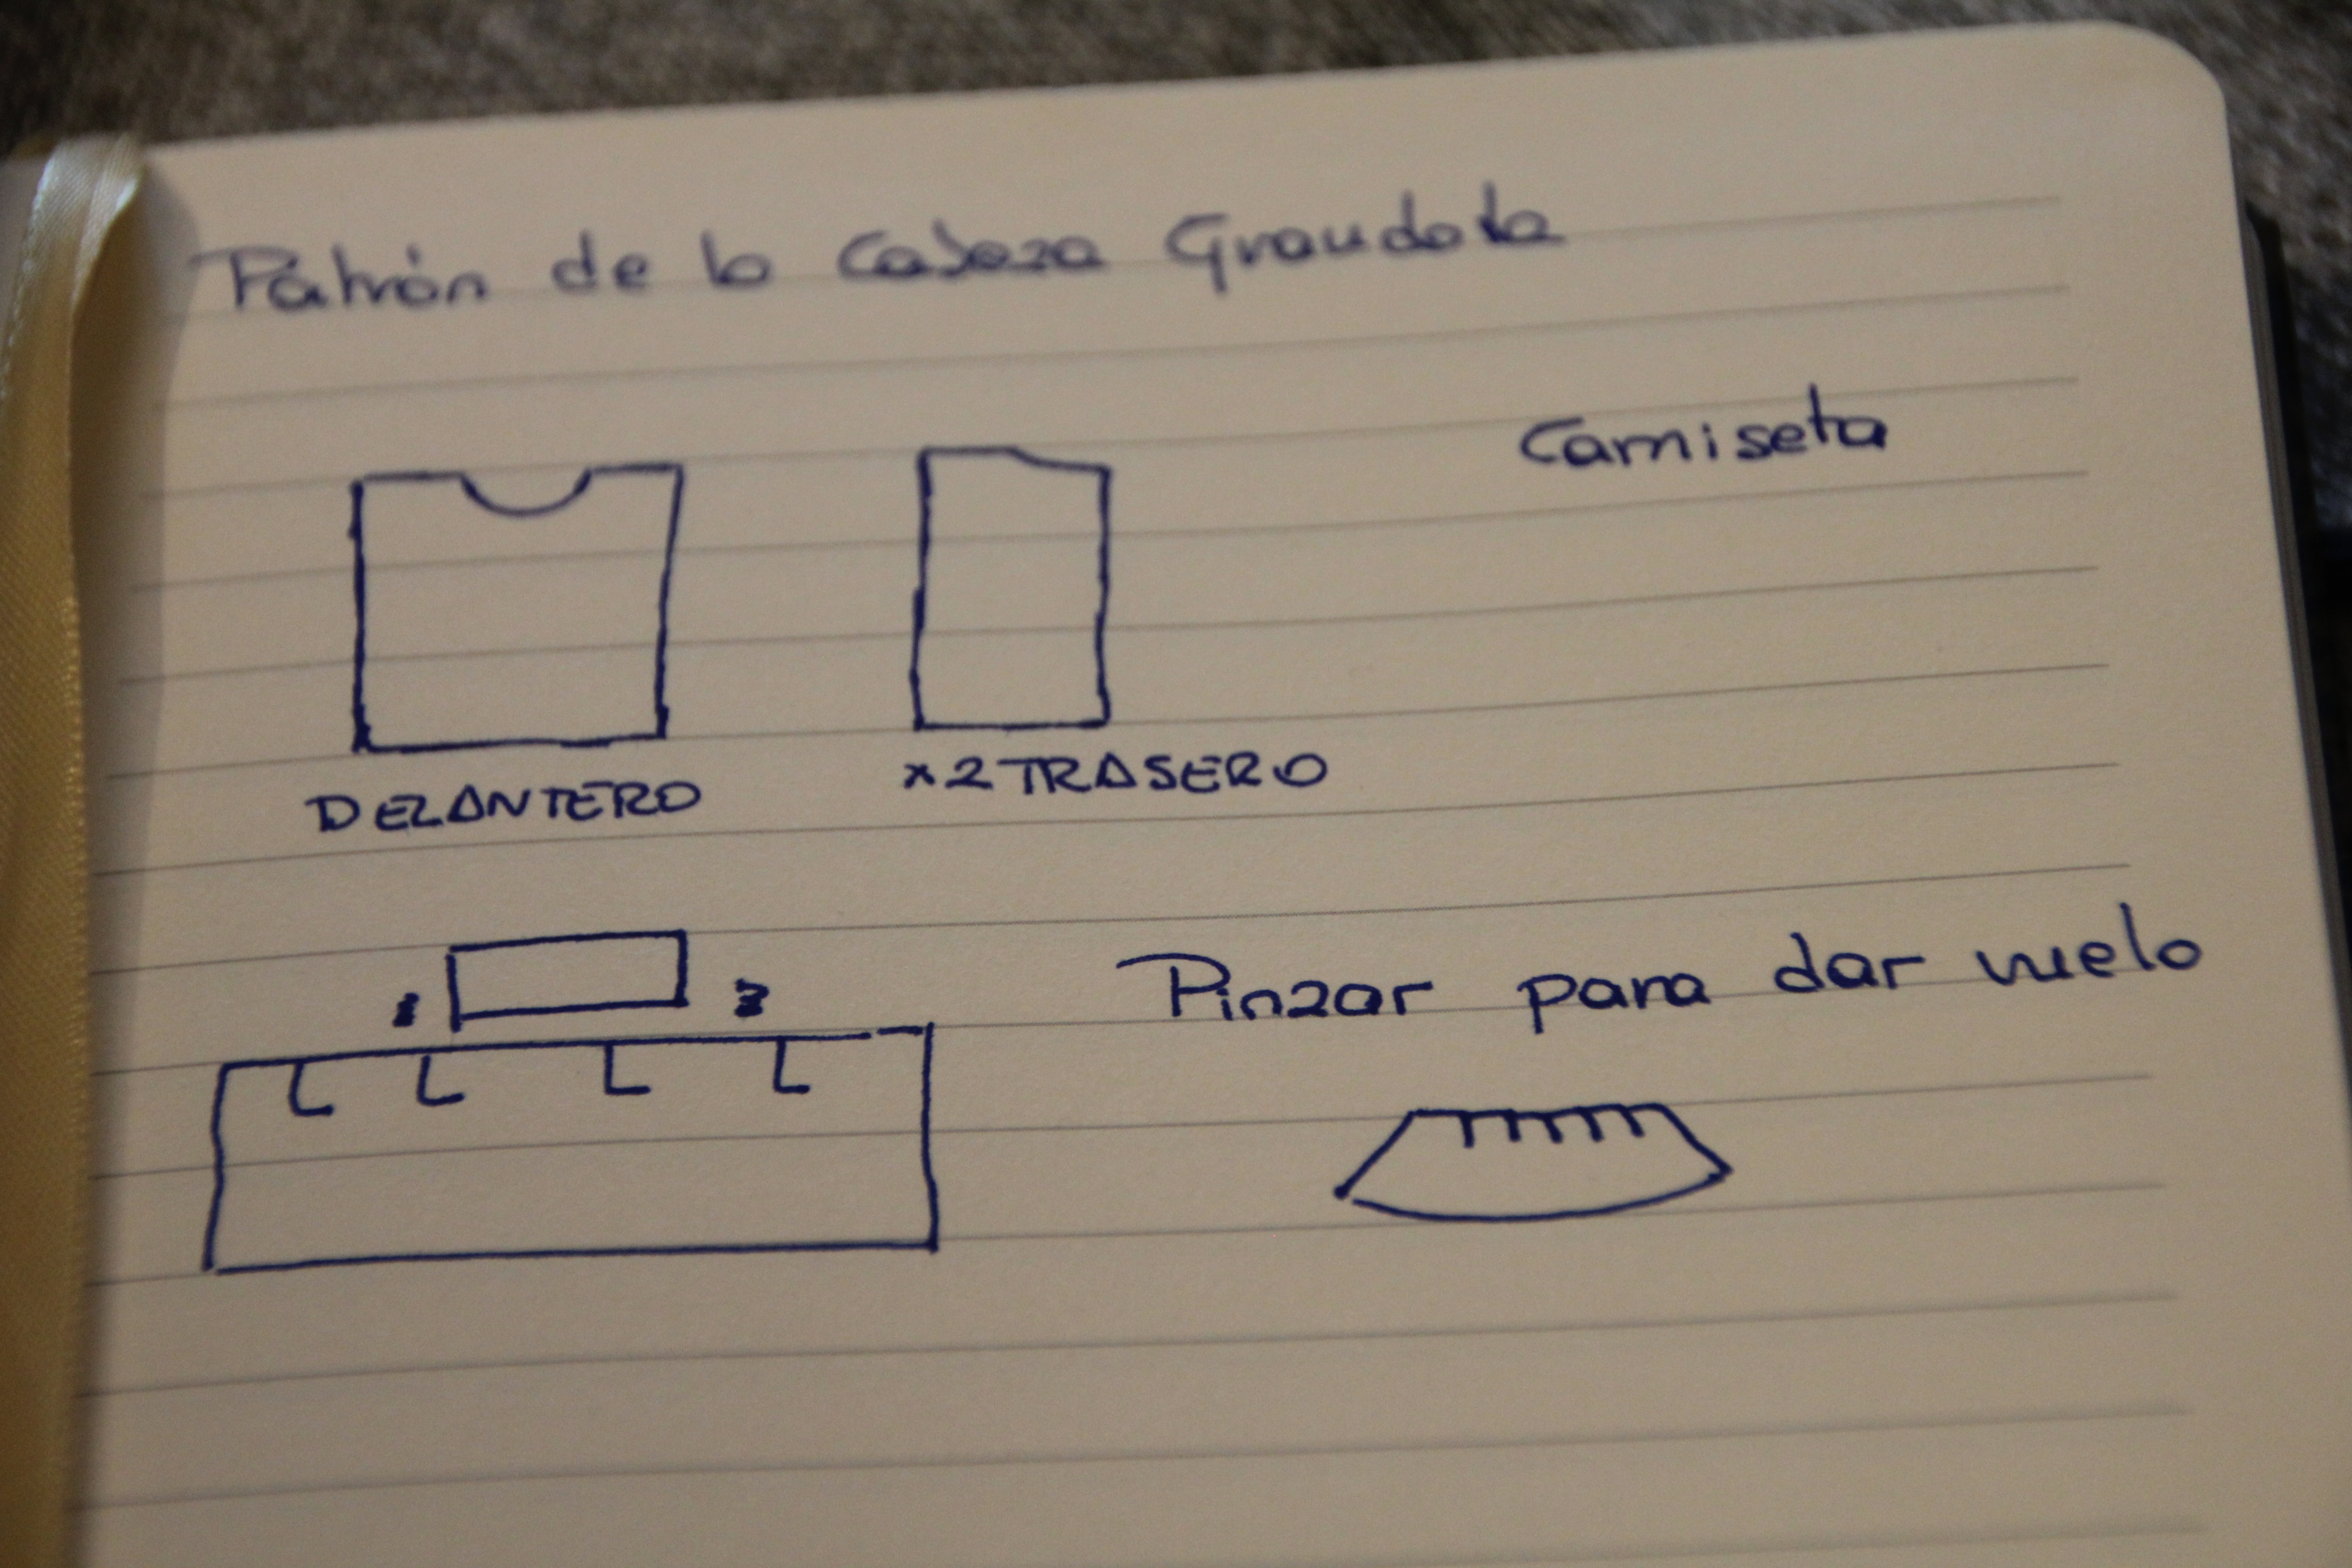 Patrón de la Cabeza Grandota
Camiseta
DELANTERO
x2 TRASERO
Pinzar para dar vuelo